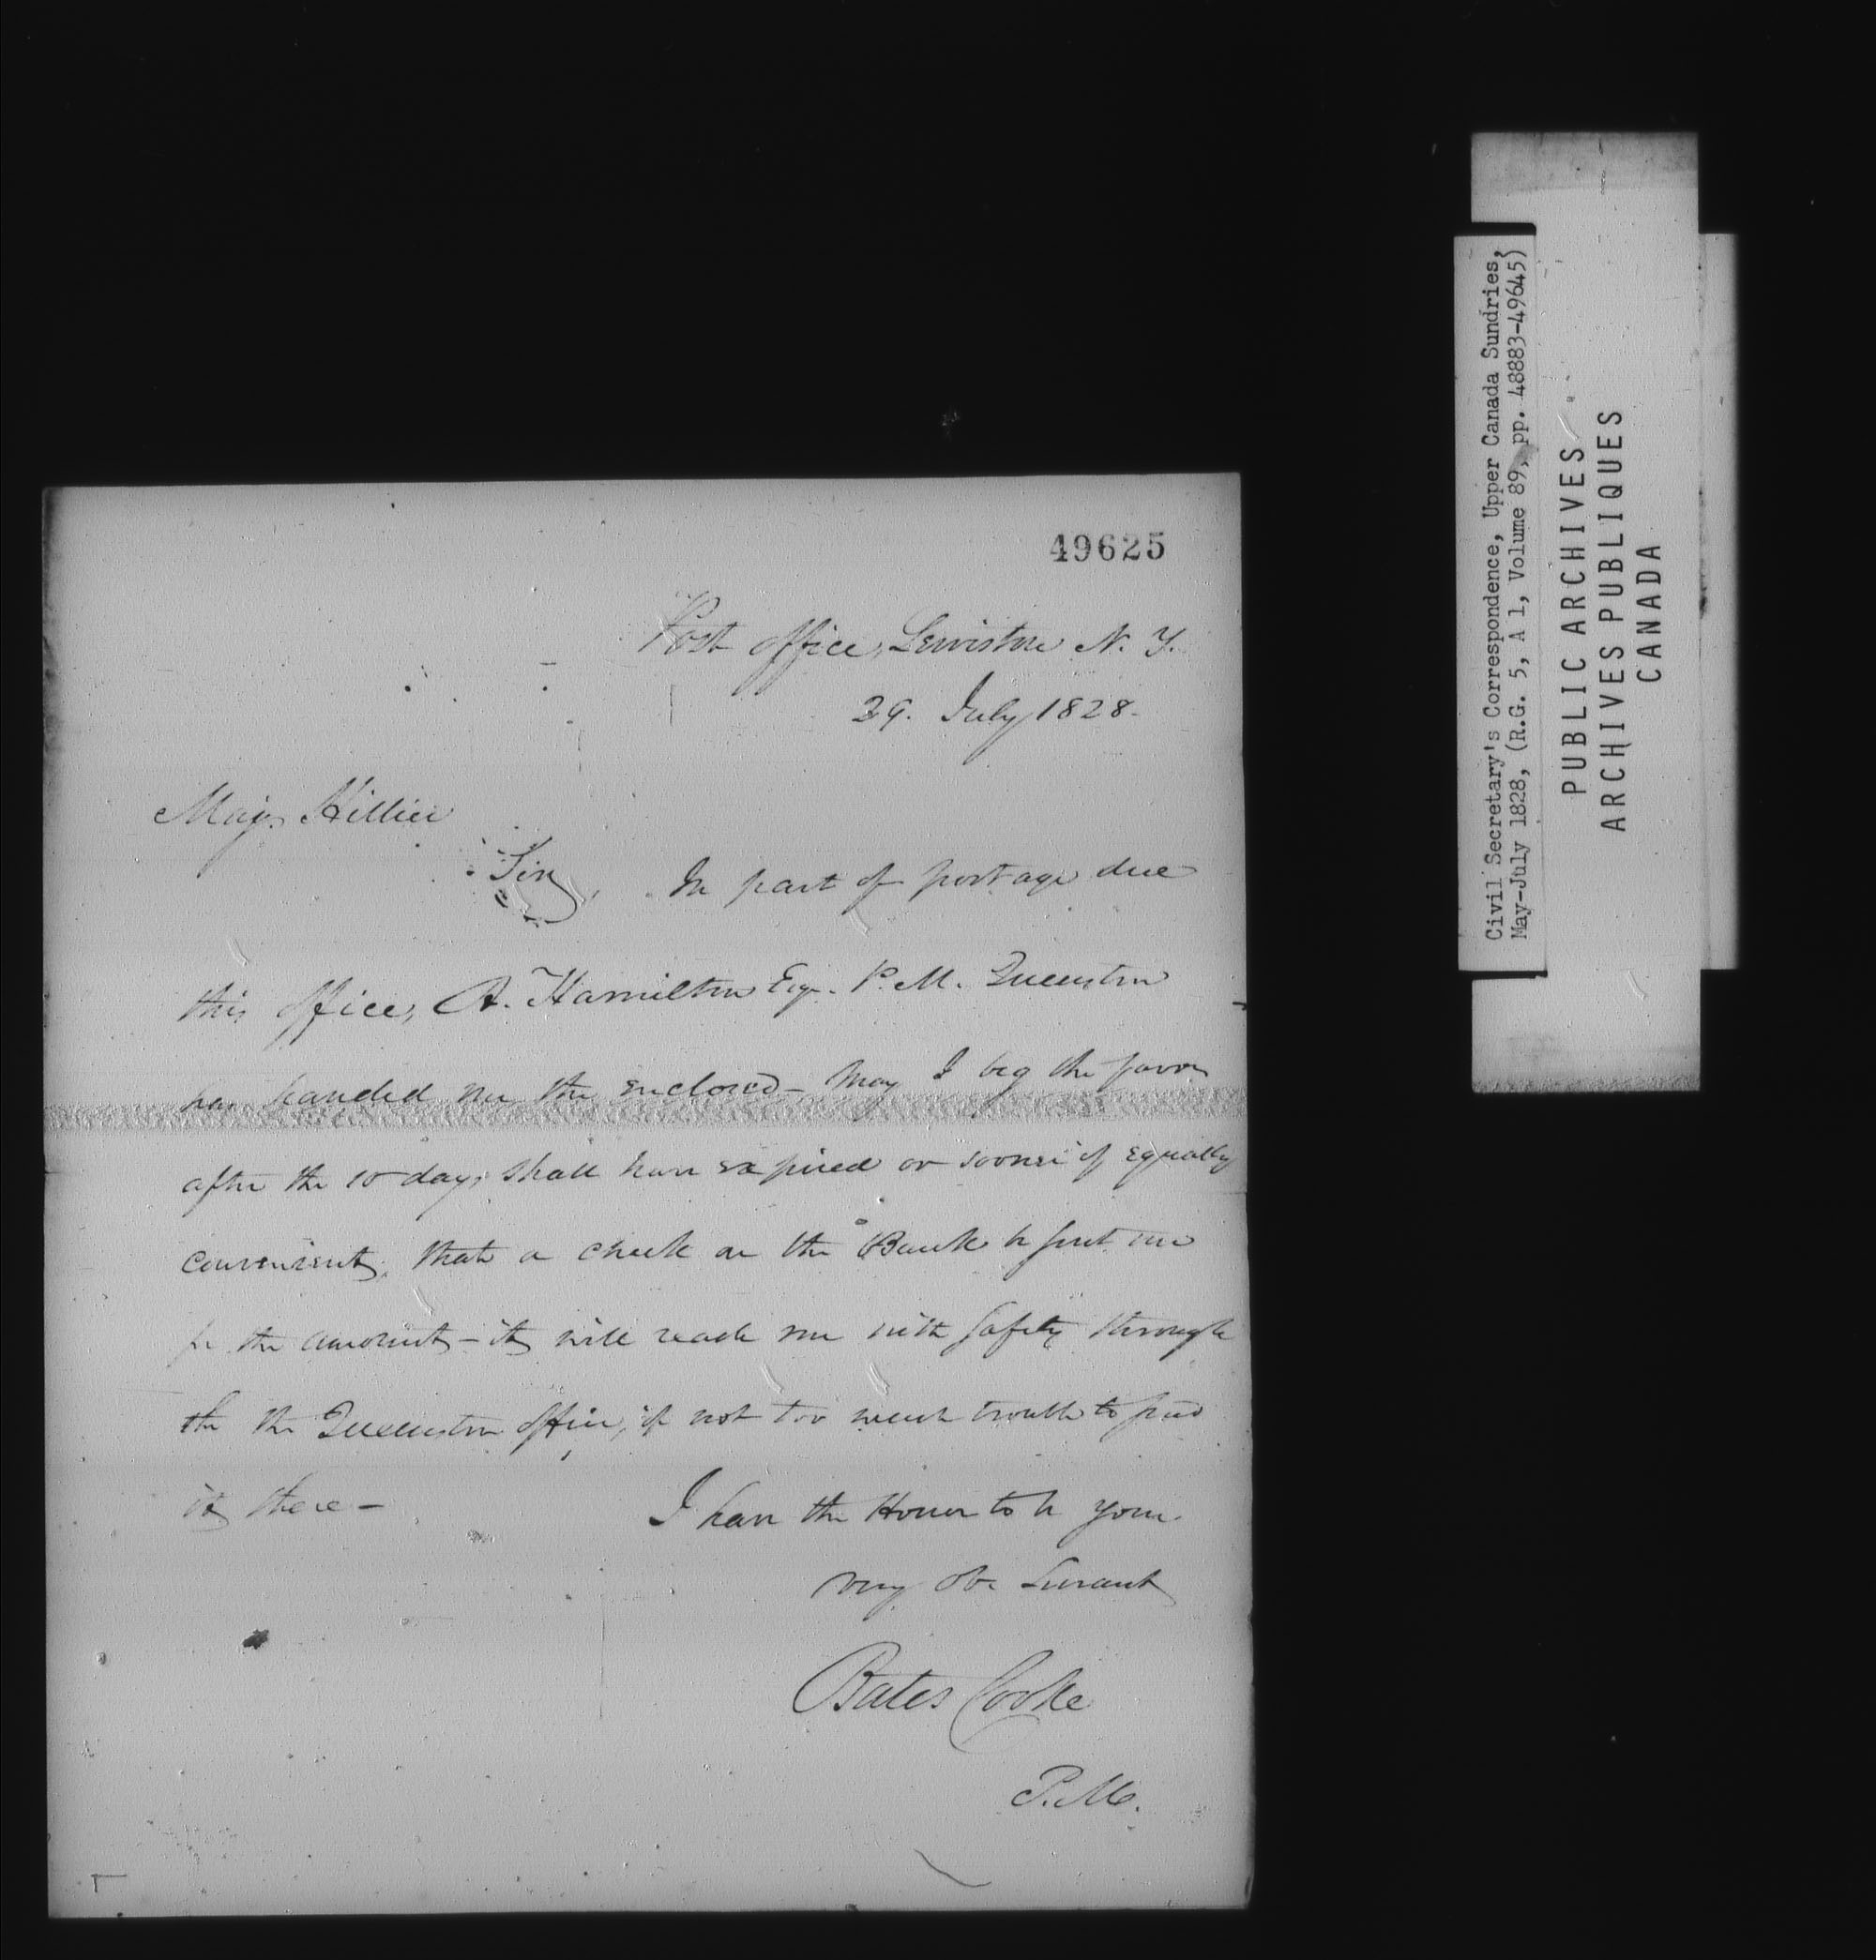 49625
Post office, Lewiston N. Y.
29. July 1828.
Maj. Hillier
Sir, In part of postage due
this office, A. Hamilton Esq. P. M. Queenston
has handed me the enclosed - May I beg the favor
after the 10 days shall have expired or sooner if equally
convenient, that a check on the Bank be sent me
for the amount - it will reach me with safety through
the the Queenston office, if not too much trouble to send
it there -
I have the Honor to be your
very ob. Servant
Bates Cooke
P.M.
Civil Secretary's Correspondence, Upper Canada Sundries,
May-July 1828, (R.G. 5, A 1, Volume 89, pp. 48883-49645)
PUBLIC ARCHIVES
ARCHIVES PUBLIQUES
CANADA